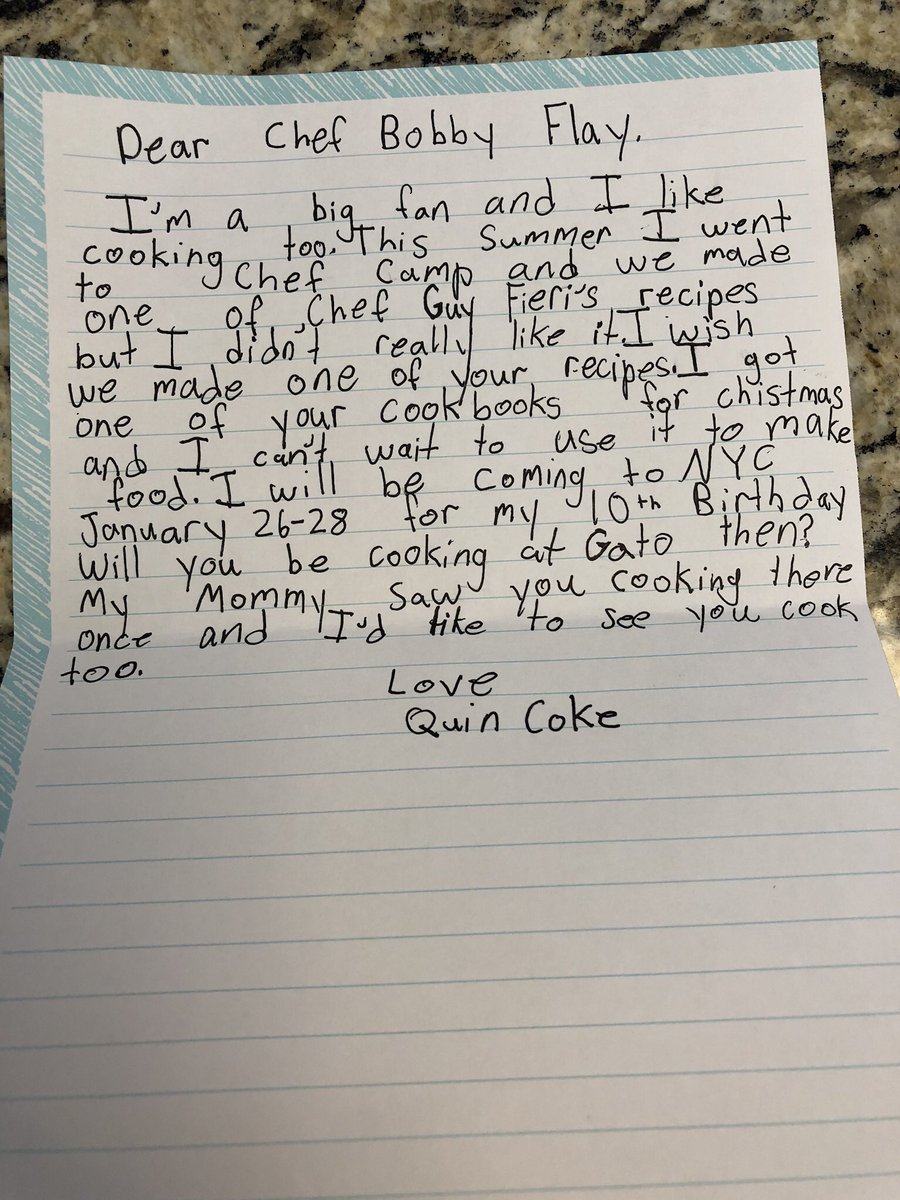 Dear Chef Bobby Flay.
I'm a big fan and I like
cooking too. This Summer I went
to Chef Camp and we made
one of Chef Guy Fieri's recipes
but I didn't really like it. I wish
we made one of your recipes. I got
one of your cookbooks for chistmas
and I can't wait to use it to make
food. I will be coming to NYC
January 26-28 for my 10th Birthday
Will you be cooking at Gato then?
My Mommy saw you cooking there
once and I'd like to see you cook
too.
Love
Quin Coke